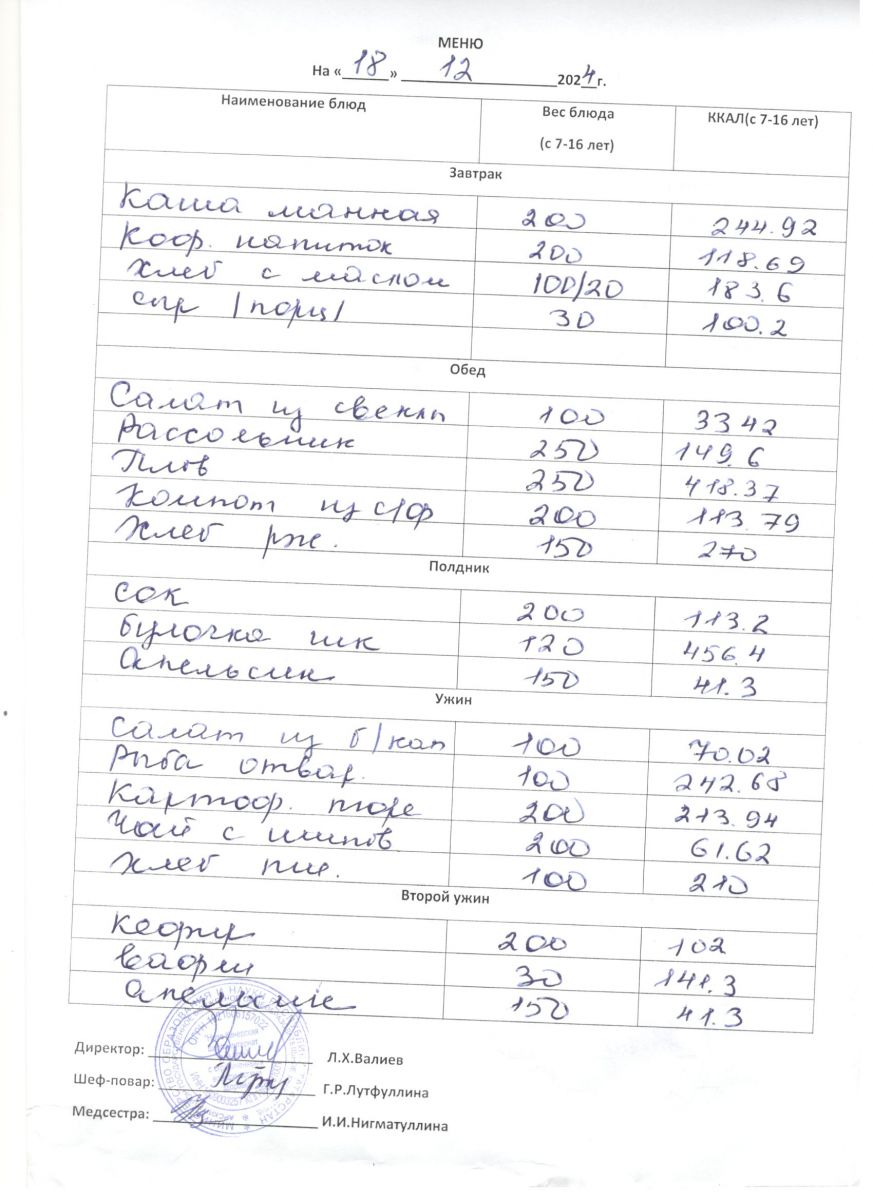 МЕНЮ
На «18» 12 2024г.
Наименование блюд Вес блюда (с 7-16 лет) ККАЛ(с 7-16 лет)
Завтрак
Каша манная 200 244.92
Коф. напиток 200 118.69
Хлеб с маслом 100/20 183.6
сыр /порц/ 30 100.2
Обед
Салат из свеклы 100 33 42
Рассольник 250 149.6
Плов 250 418.37
Компот из с/ф 200 113.79
Хлеб рж. 150 270
Полдник
Сок 200 113.2
булочка шк 120 456.4
Апельсин 150 41.3
Ужин
Салат из б/кап 100 70.02
Рыба отвар. 100 242.68
Картоф. пюре 200 213.94
Чай с шипов. 200 61.62
Хлеб пш. 100 210
Второй ужин
Кефир 200 102
Вафли 30 141.3
Апельсин 150 41.3
Директор: Л.Х.Валиев
Шеф-повар: Г.Р.Лутфуллина
Медсестра: И.И.Нигматуллина